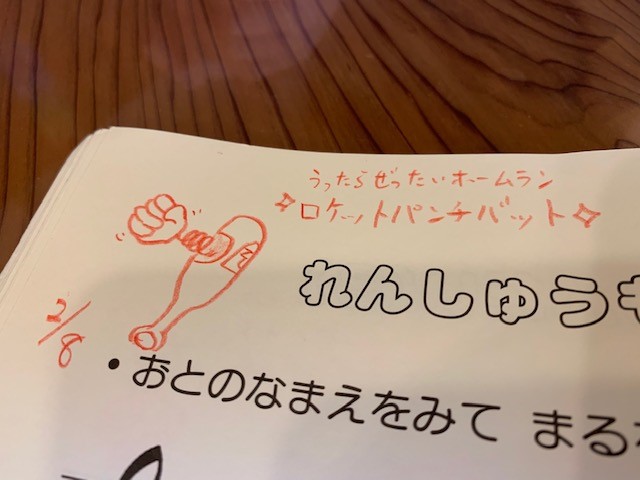 うったらぜったいホームラン
ロケットパンチバット
れんしゅう
2/8
・おとのなまえをみて まる